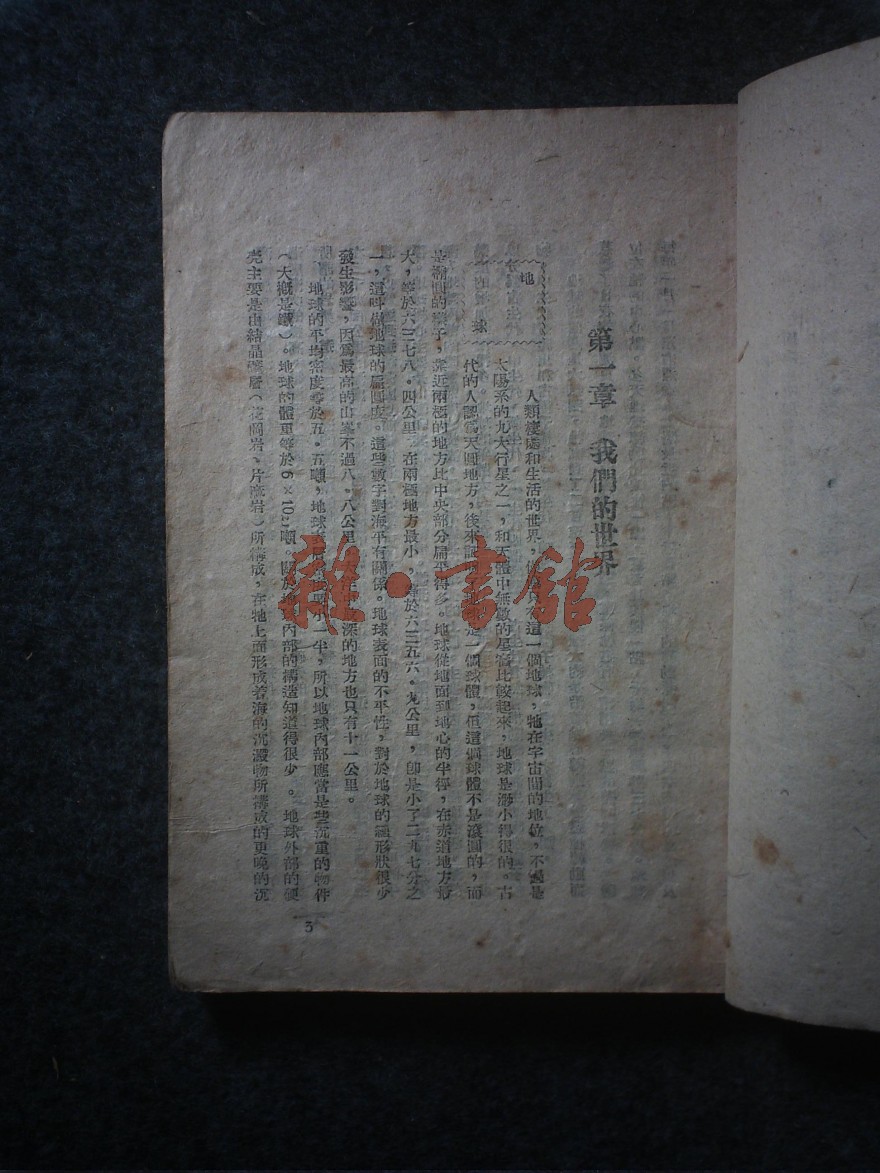 第一章　我們的世界
地球
人類棲處和生活的世界，
這一個地球，牠在宇宙間的地位，不過是
太陽系的九大行星之一，和天體中無數的星
比較起來，地球是渺小得很的。古
代的人認爲天圓地方，後來
是一個球體，但這個球體不是滾圓的，而
是橢圓的
，靠近兩極的地方比中央部分扁平得多。地球從地面到地心的半徑，在赤道地方最
大，等於六三七八。四公里，在兩極地方最小，等於六三五六。九公里，卽是小了二九七分之
一，這叫做地球的扁圓度。這些數字對海平有關係。地球表面的不平性，對於地球的
形狀很少
發生影響，因爲最高的山峯不過八。八公里，
洋中最深的地方也只有十一公里。
地球的平均密度等於五。五噸，地球
小一半，所以地球內部應當是些沉重的物件
（大概是鐵）。地球的體重等於6×10²¹噸。關於地球內部的構造知道得很少。地球外部的硬
壳主要是由結晶礦層（花岡岩、片麻岩）所構成，在牠上面形成着海的沉澱物所構成的更晚的沉
3
雜·書館